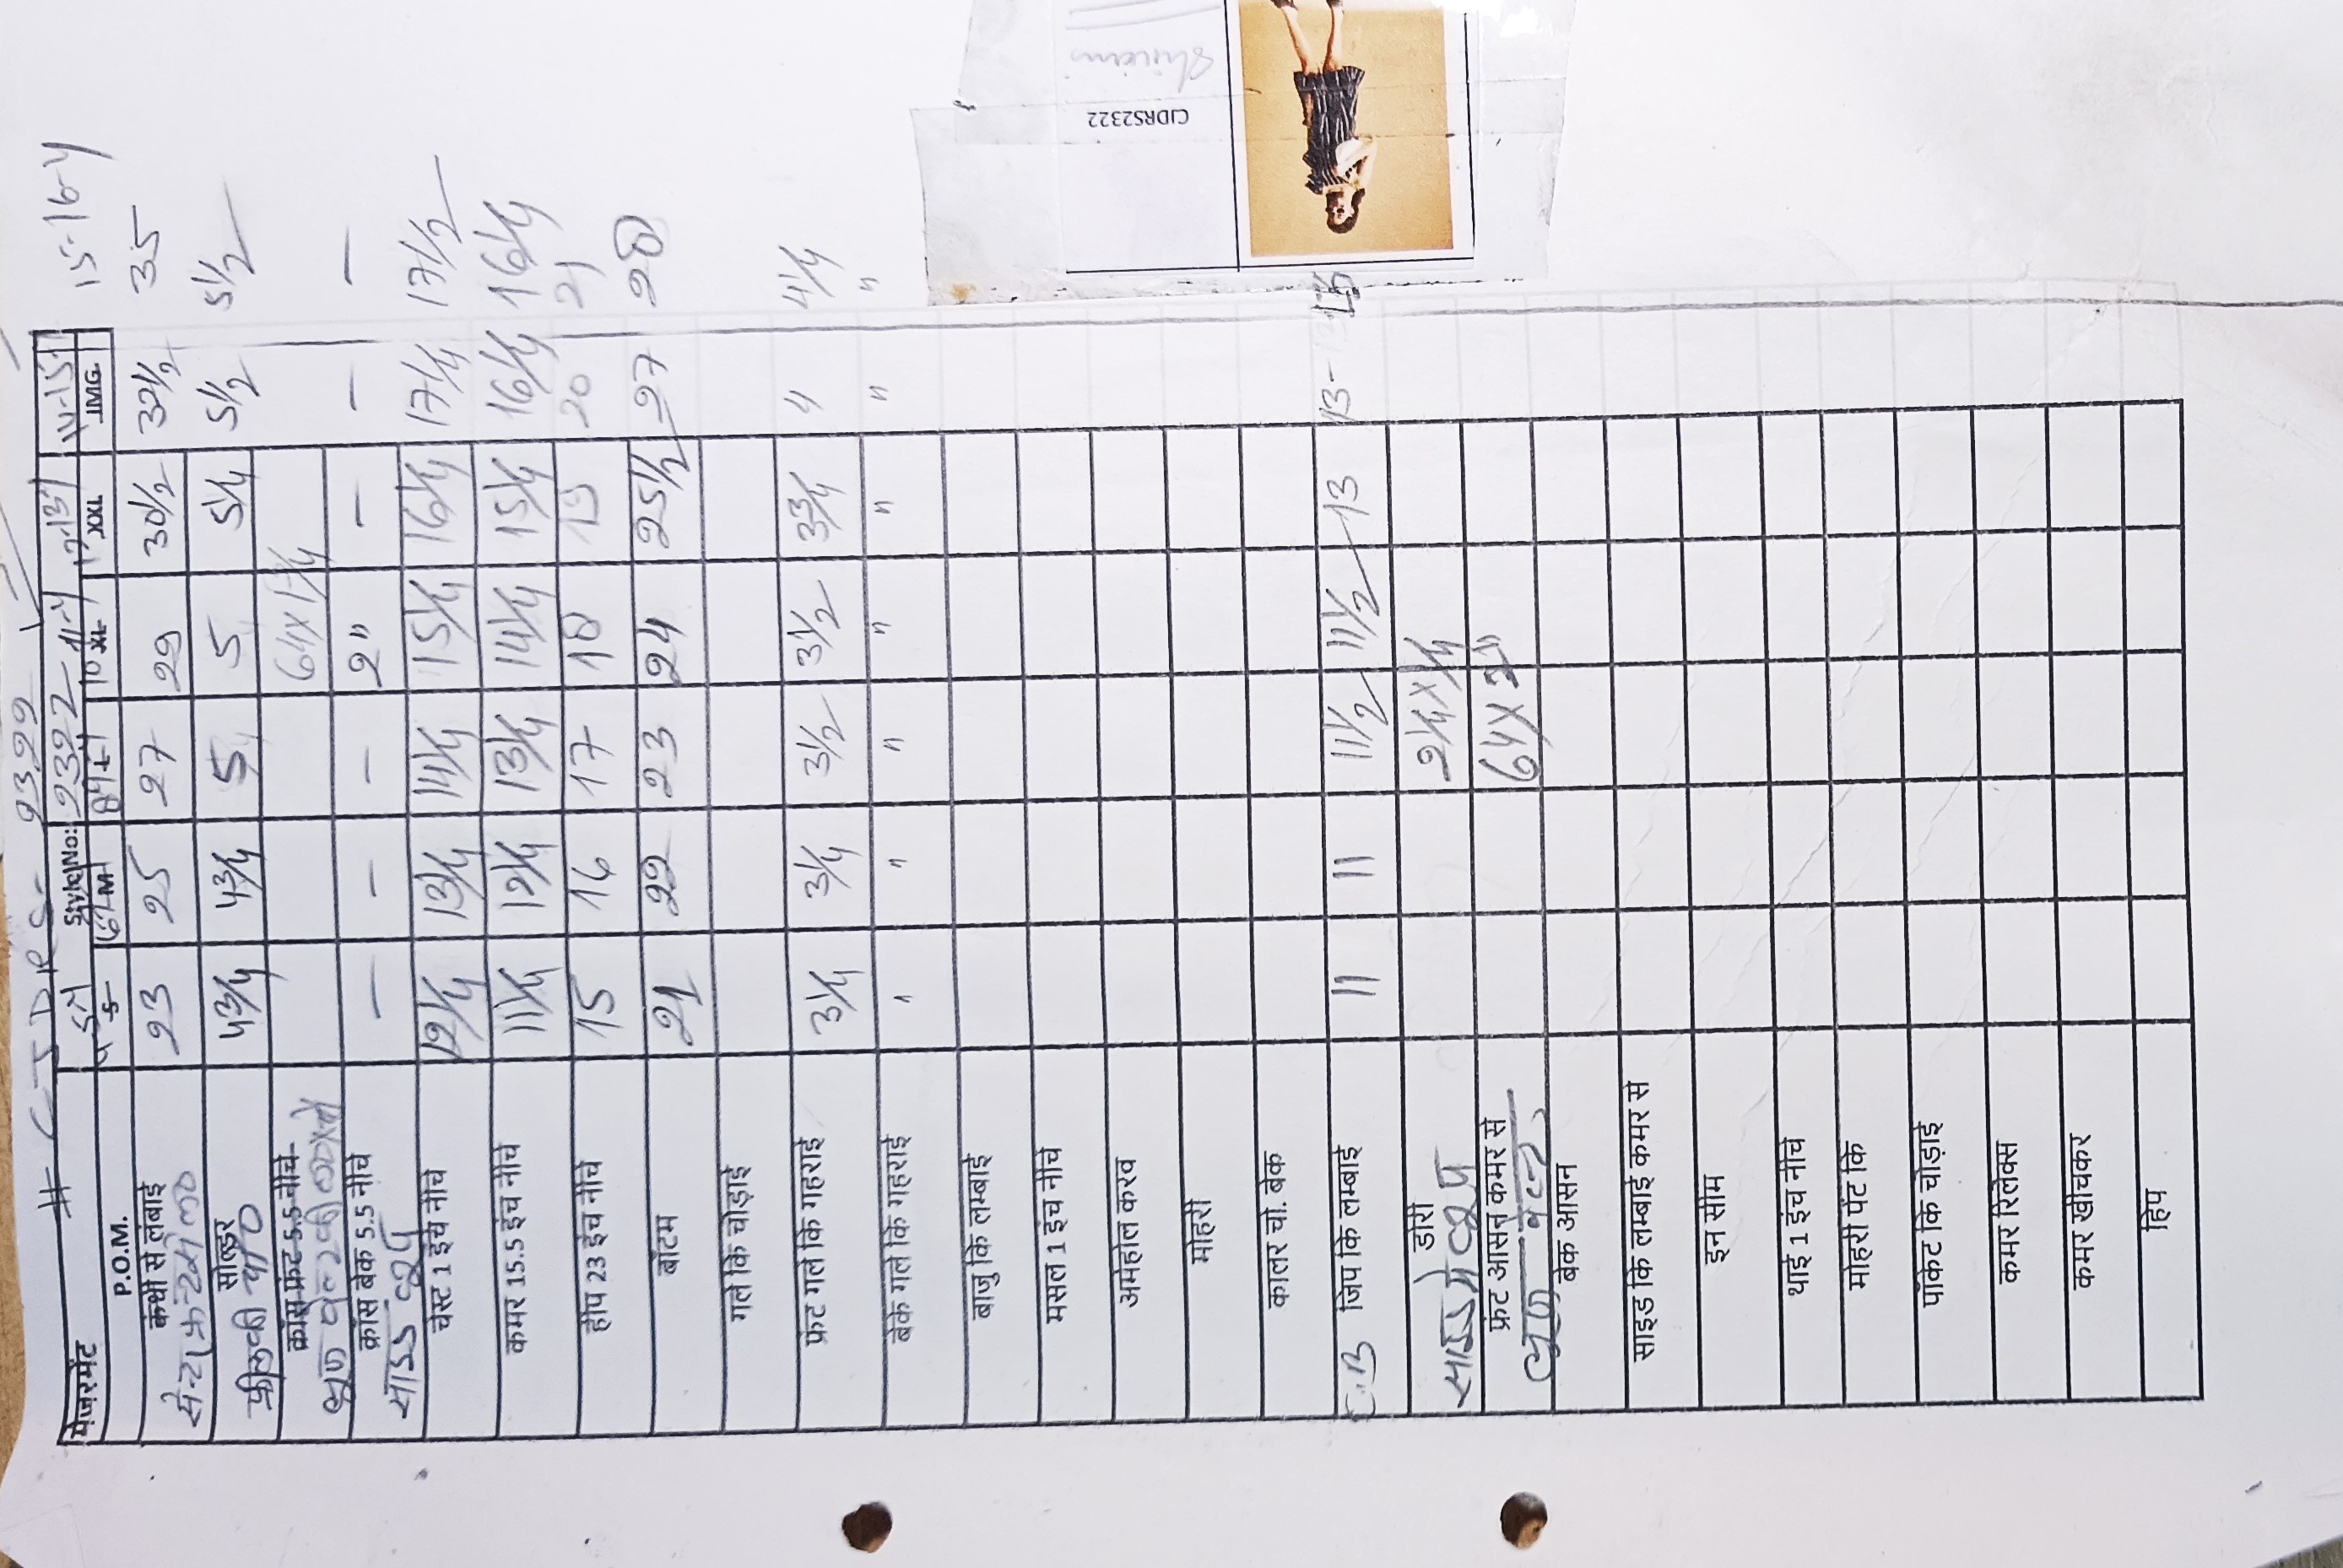 # CJDRS- 2322
मेजरमेंट Style No: 2322
P.O.M. 4-5Y 6-7Y 8-9Y 10-11Y 12-13Y 14-15Y 15-16Y
S M L XL XXL IMG.
कंधी से लंबाई 23 25 27 29 30 1/2 32 1/2 35
सोल्डर 4 3/4 4 3/4 5 5 5 1/4 5 1/2 5 1/2
क्रॉस फ्रंट 5.5 नीचे 64 x 1 3/4
क्रॉस बेक 5.5 नीचे - - - 2" - - -
साइड लूप
चेस्ट 1 इंच नीचे 12 1/4 13 1/4 14 1/4 15 1/4 16 1/4 17 1/4 17 1/2
कमर 15.5 इंच नीचे 11 1/4 12 1/4 13 1/4 14 1/4 15 1/4 16 1/4 16 1/4
हीप 23 इंच नीचे 15 16 17 18 19 20 21
बॉटम 21 22 23 24 25 1/2 27 28
गले कि चोड़ाई
फ्रंट गले कि गहराई 3 1/4 3 1/4 3 1/2 3 1/2 3 3/4 4 4 1/4
बेक गले कि गहराई " " " " " " "
बाजु कि लम्बाई
मसल 1 इंच नीचे
अमेहोल करव
मोहरी
कालर चो. बेक
C.B जिप कि लम्बाई 11 11 11 1/2 11 1/2 13 13 15
डोरी 2 1/4 x 1/4
साइड लूप
फ्रंट आसन कमर से 64 x 2"
लूज बेल्ट
बेक आसन
साइड कि लम्बाई कमर से
इन सीम
थाई 1 इंच नीचे
मोहरी पेंट कि
पॉकेट कि चोड़ाई
कमर रिलेक्स
कमर खीचकर
हिप
CJDRS2322